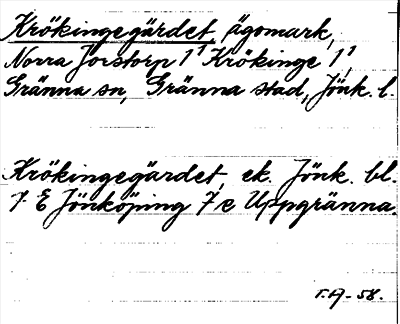 Krökingegärdet, ägomark,
Norra Jorstorp 1¹ Krökinge 1¹,
Gränna sn, Gränna stad, Jönk. l.
Krökingegärdet, ek. Jönk. bl.
7 E Jönköping 7 e Uppgränna.
T.A-58.